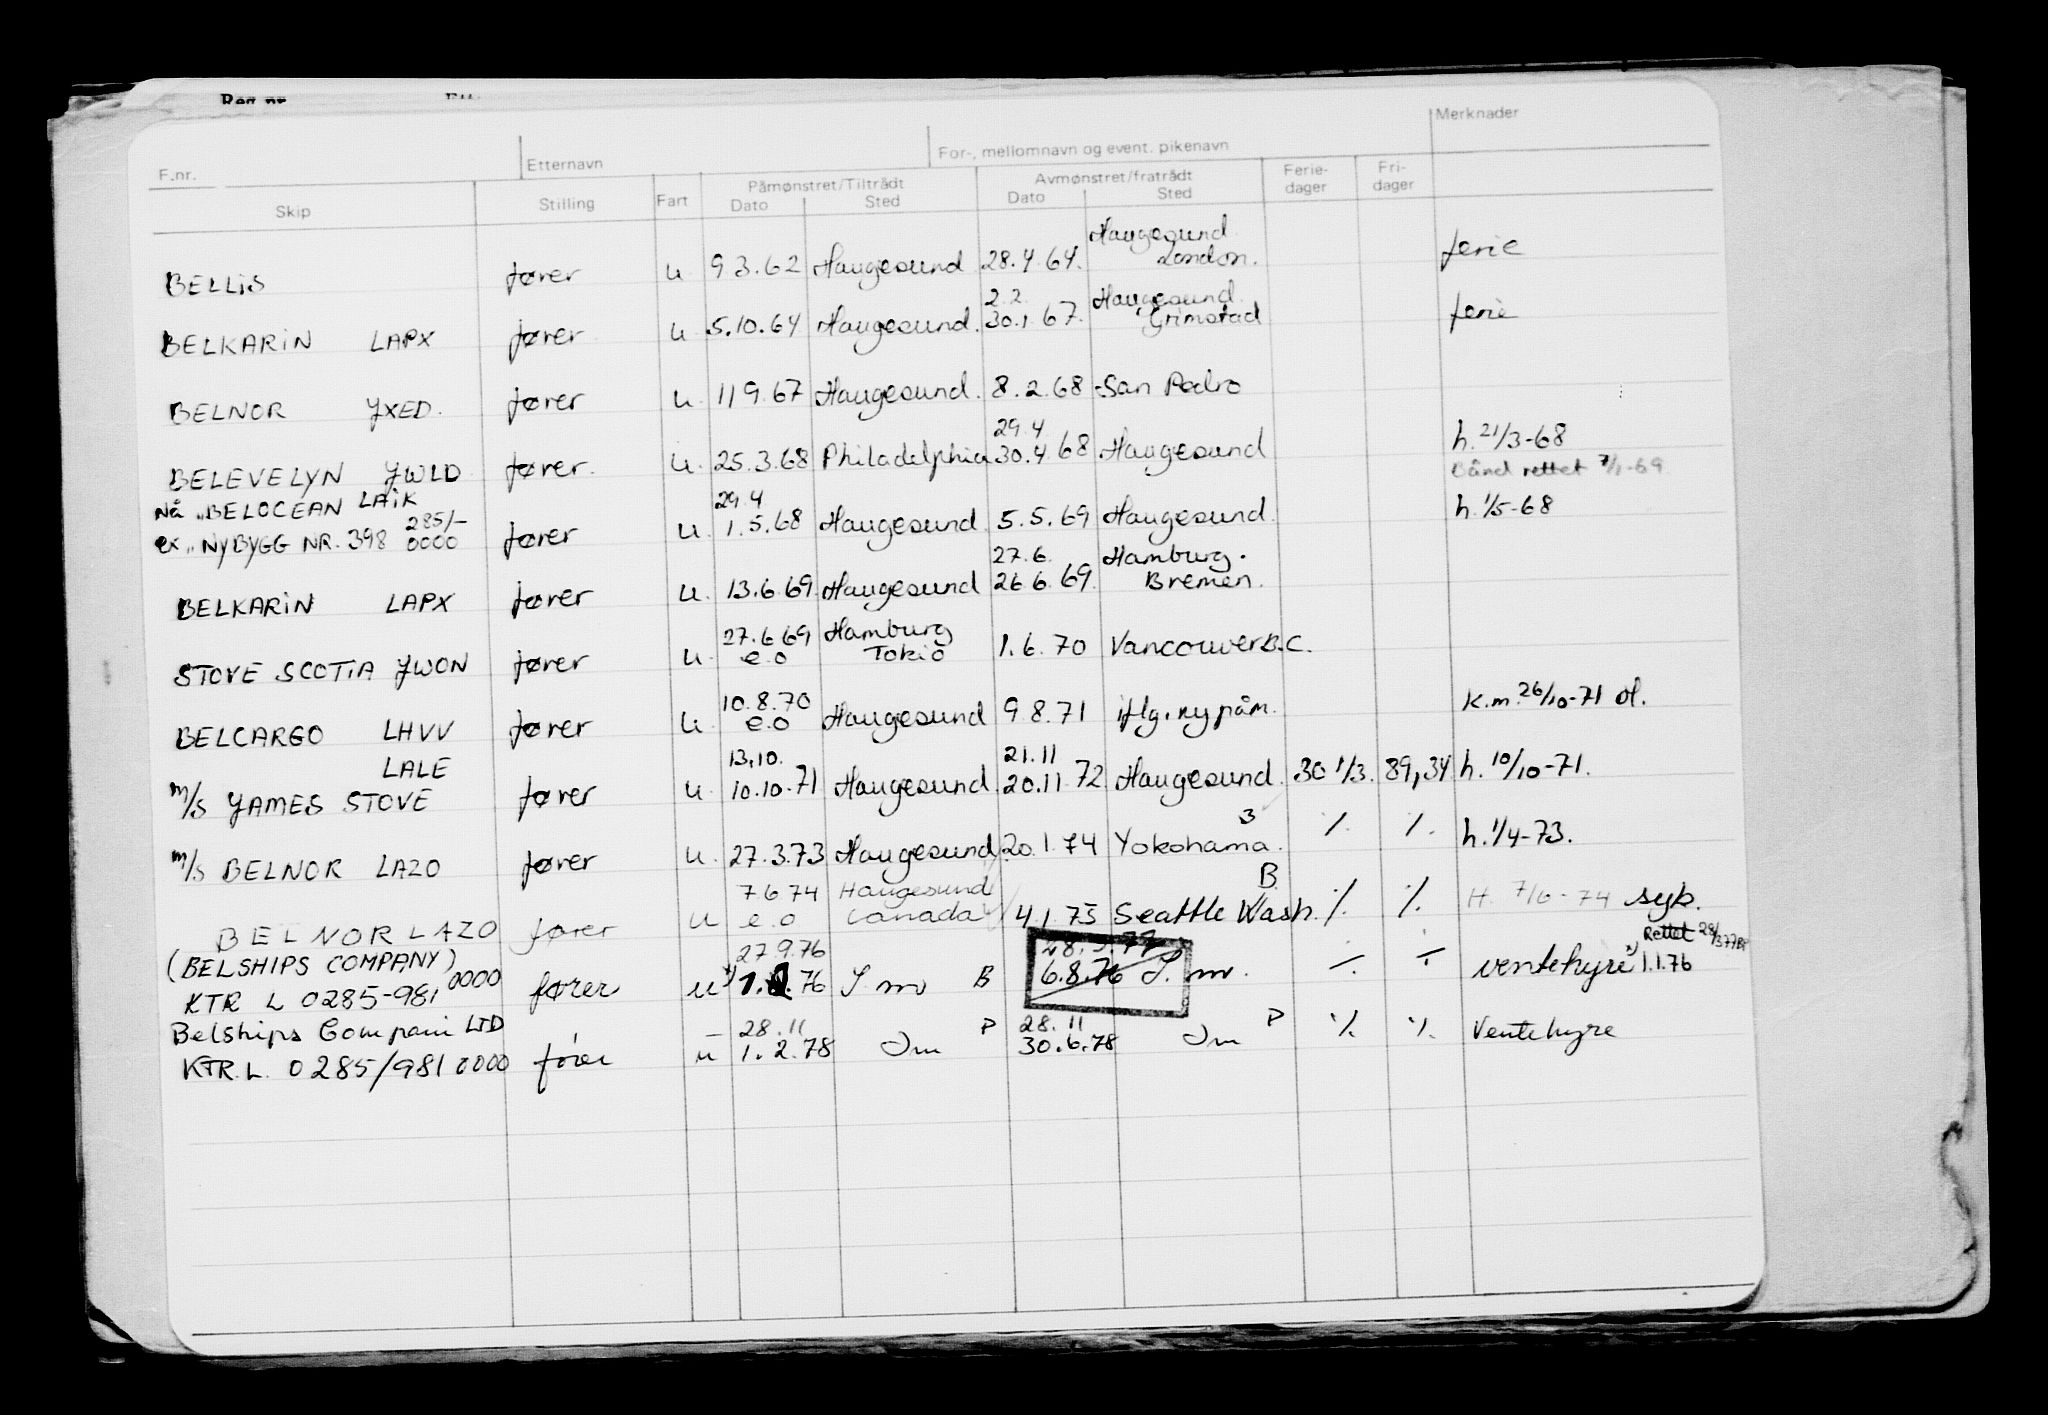 Reg.nr.
F.nr. Etternavn For-, mellomnavn og event. pikenavn Merknader
Skip Stilling Fart Påmønstret/Tiltrådt Dato Sted Avmønstret/fratrådt Dato Sted Ferie-dager Fri-dager
Haugesund
BELLIS fører u 9 3.62 Haugesund 28.4 64. London. ferie
2.2. Haugesund
BELKARIN LAPX fører u 5.10.64 Haugesund. 30.1 67. Grimstad ferie
BELNOR JXED. fører u. 11 9.67 Haugesund. 8.2.68 San Pedro
29.4
BELEVELYN JWLD fører. u. 25.3.68 Philadelphia 30.4 68 Haugesund h. 21/3-68
Bånd rettet 7/1-69
Nå "BELOCEAN LAIK 29.4
285/-
ex "NYBYGG NR. 398 0000 fører u. 1.5.68 Haugesund. 5.5.69 Haugesund. h. 1/5-68
27.6. Hamburg.
BELKARIN LAPX fører u. 13.6.69. Haugesund 26 6.69. Bremen.
27.6 69 Hamburg
STOVE SCOTIA JWON fører u. e.o Tokio 1.6.70 Vancouver B.C.
10.8.70
BELCARGO LHVV fører u. e.o Haugesund 9.8.71 iflg. ny påm. K.m. 26/10-71 ol.
LALE 13.10. 21.11
m/s JAMES STOVE fører u. 10.10.71 Haugesund. 20.11.72 Haugesund. 30 1/3. 89,34 h. 10/10-71.
3
m/s BELNOR LAZO fører u. 27.3.73 Haugesund. 20.1.74 Yokohama. ./. ./. h. 1/4-73.
7 6 74 Haugesund B.
BELNOR LAZO fører u e.o Canada 4.1.75 Seattle Wash. ./. ./. H. 7/6-74 syk.
(BELSHIPS COMPANY) 27.9.76 Rettet
KTR L 0285-981 0000 fører u 76 B 6.8.76 ./. ./. ventehyre 1.1.76
Belships Compani LTD 28.11 P 28.11 P
KTR. L. 0285/981 0000 fører u 1.2.78 Im 30.6.78 Im ./. ./. Ventehyre